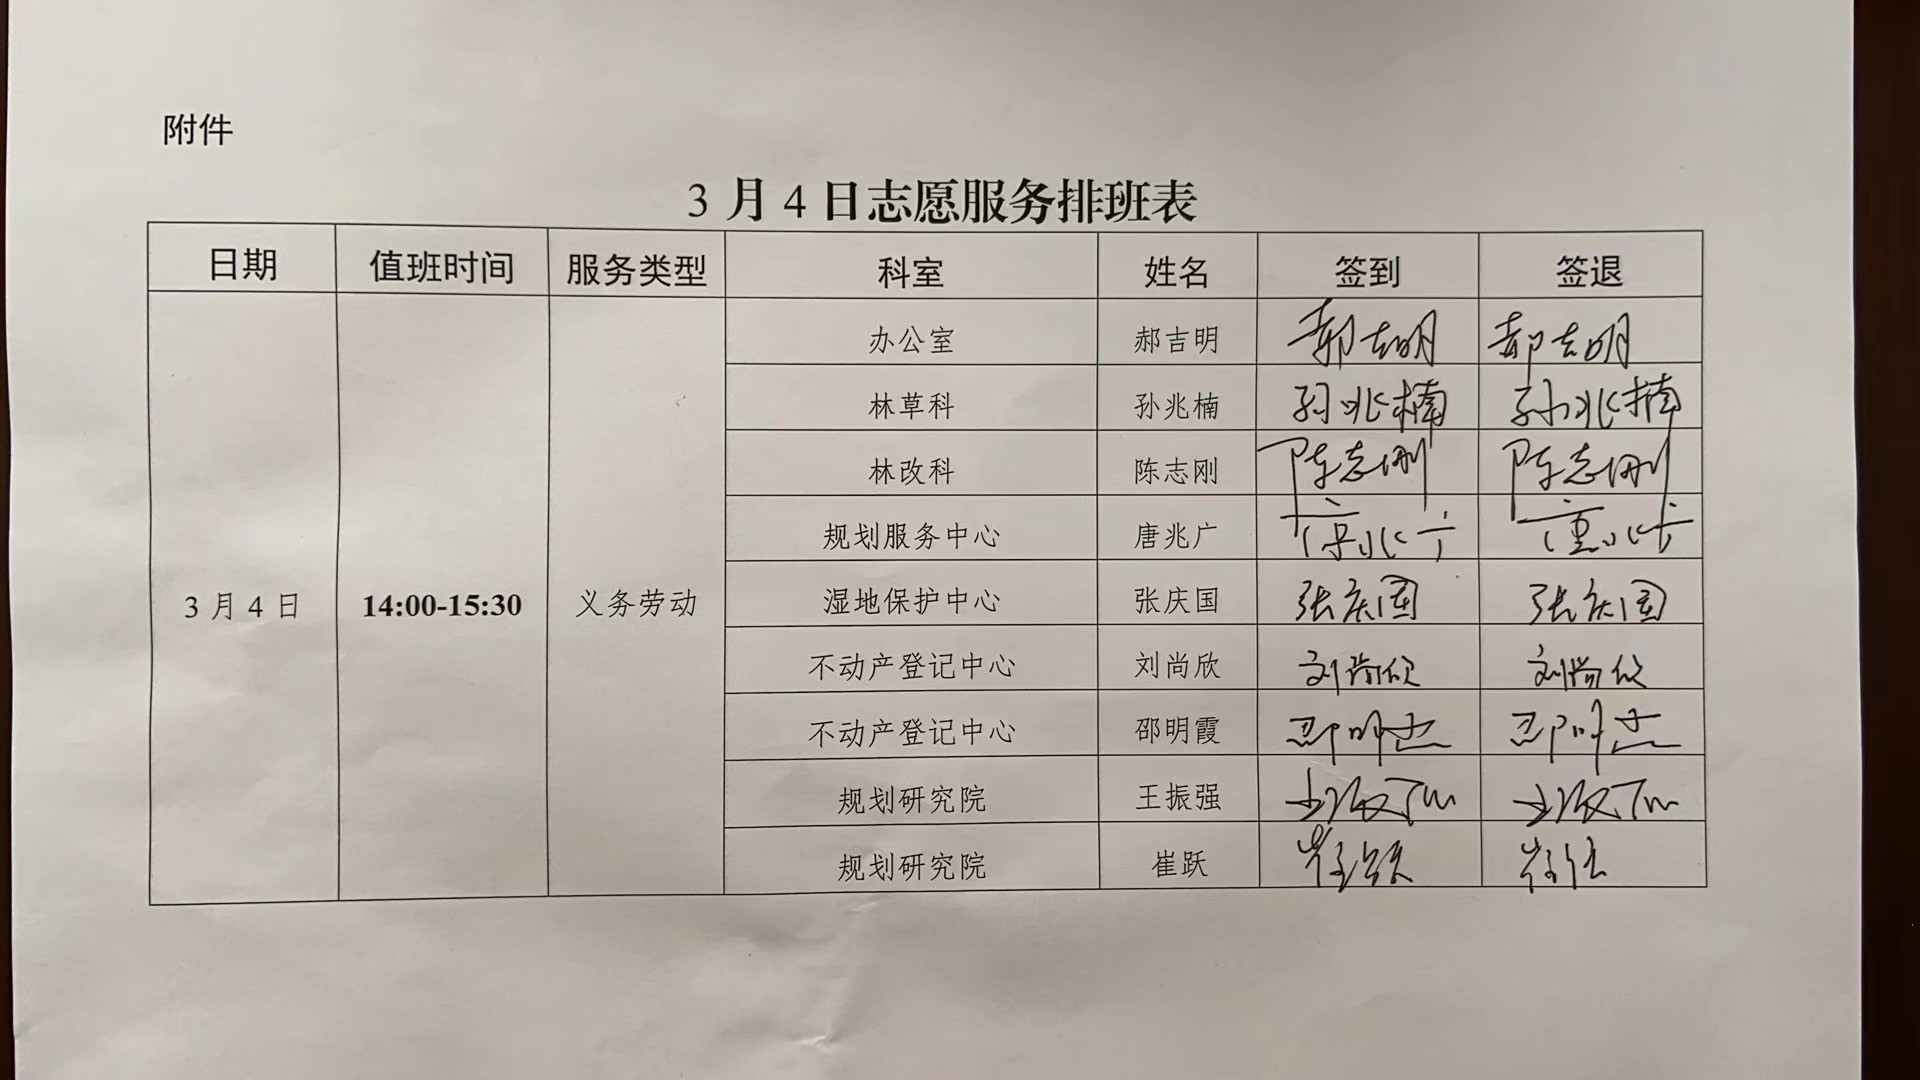 附件
3月4日志愿服务排班表
日期 值班时间 服务类型 科室 姓名 签到 签退
办公室 郝吉明 郝吉明 郝吉明
林草科 孙兆楠 孙兆楠 孙兆楠
林改科 陈志刚 陈志刚 陈志刚
规划服务中心 唐兆广 唐兆广 唐兆广
3月4日 14:00-15:30 义务劳动 湿地保护中心 张庆国 张庆国 张庆国
不动产登记中心 刘尚欣 刘尚欣 刘尚欣
不动产登记中心 邵明霞 邵明霞 邵明霞
规划研究院 王振强 王振强 王振强
规划研究院 崔跃